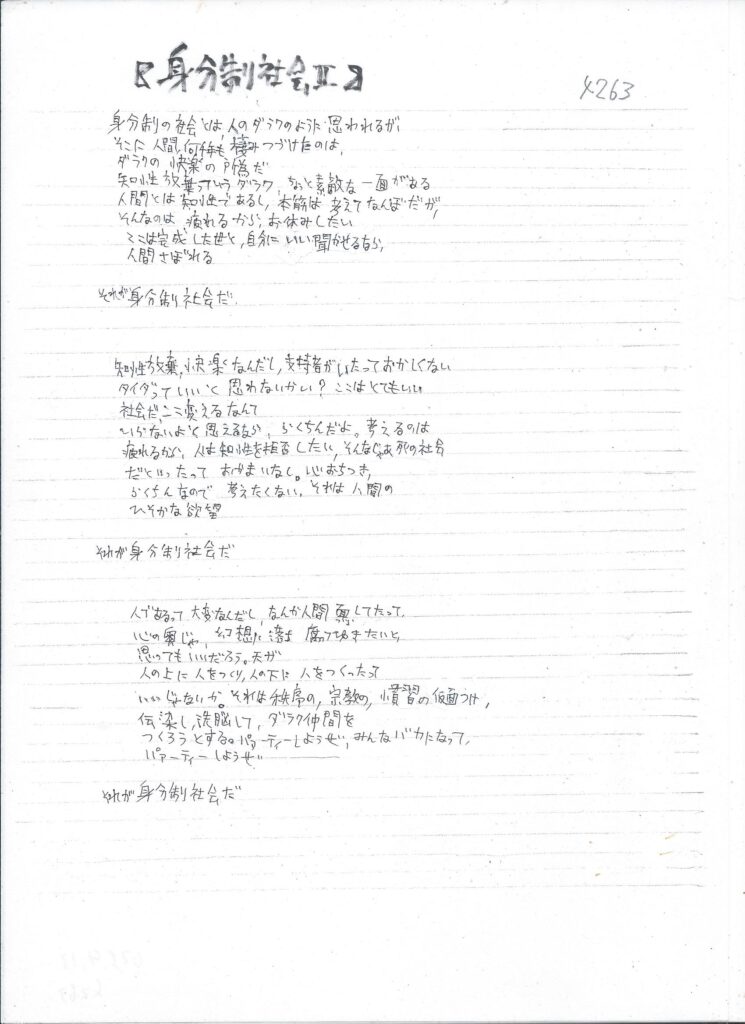 【身分制社会Ⅱ】
4263
身分制の社会とは、人のダラクのように思われるが、
そこに人間、何千年も、棲みつづけたのは、
ダラクの快楽の所為だ
知性放棄っていうダラク、ちょっと素敵な一面がある
人間とは知性であるし、本筋は考えてなんぼだが、
そんなのは、疲れるから、お休みしたい
ここは完成した世と、自分にいい聞かせるなら、
人間さぼれる
それが身分制社会だ
知性放棄、快楽なんだし、支持者がいたっておかしくない
タイダっていいと思わないかい?ここはとてもいい
社会だ、ここ変えるなんて
いらないよと思えるなら、らくちんだよ。考えるのは
疲れるから、人は知性を拒否したい、そんなじゃあ死の社会
だといったって おかまいなし。心おちつき、
らくちんなので 考えたくない、それは人間の
ひそかな欲望
それが身分制社会だ
人であるって大変なんだし、なんか人間 してたって、
心の奥じゃ、幻想に落ち 腐って きたいと、
思ってもいいだろう。天が
人の上に人をつくり、人の下に人をつくったって
いいじゃないか。それは秩序の、宗教の、慣習の仮面つけ、
伝染し、洗脳して、ダラク仲間を
つくろうとする。パァーティーしようぜ、みんなバカになって、
パァーティーしようぜ
それが身分制社会だ